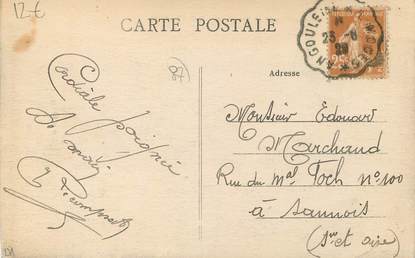 12 €
CARTE POSTALE
ANGOULEME
25-8
29
Adresse
Cordiale poignée
de main
Monsieur Edouard
Marchand
Rue du Mal Foch n° 100
à Sannois
(Sne et Oise)